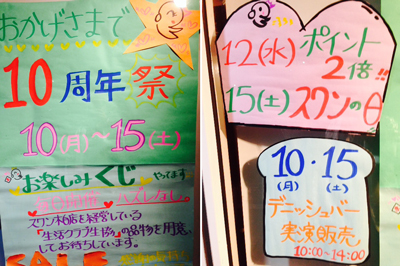 おかげさまで
10周年祭
10(月)〜15(土)
お楽しみくじ やってます
ハズレなし。
スワン本店を経営している
「生活クラブ生協」の品物を用意
してお待ちしています。
SALE
12(水) ポイント
2倍!!
15(土) スワンの日
10・15
(月) (土)
デニッシュバー
実演販売
10:00〜14:00